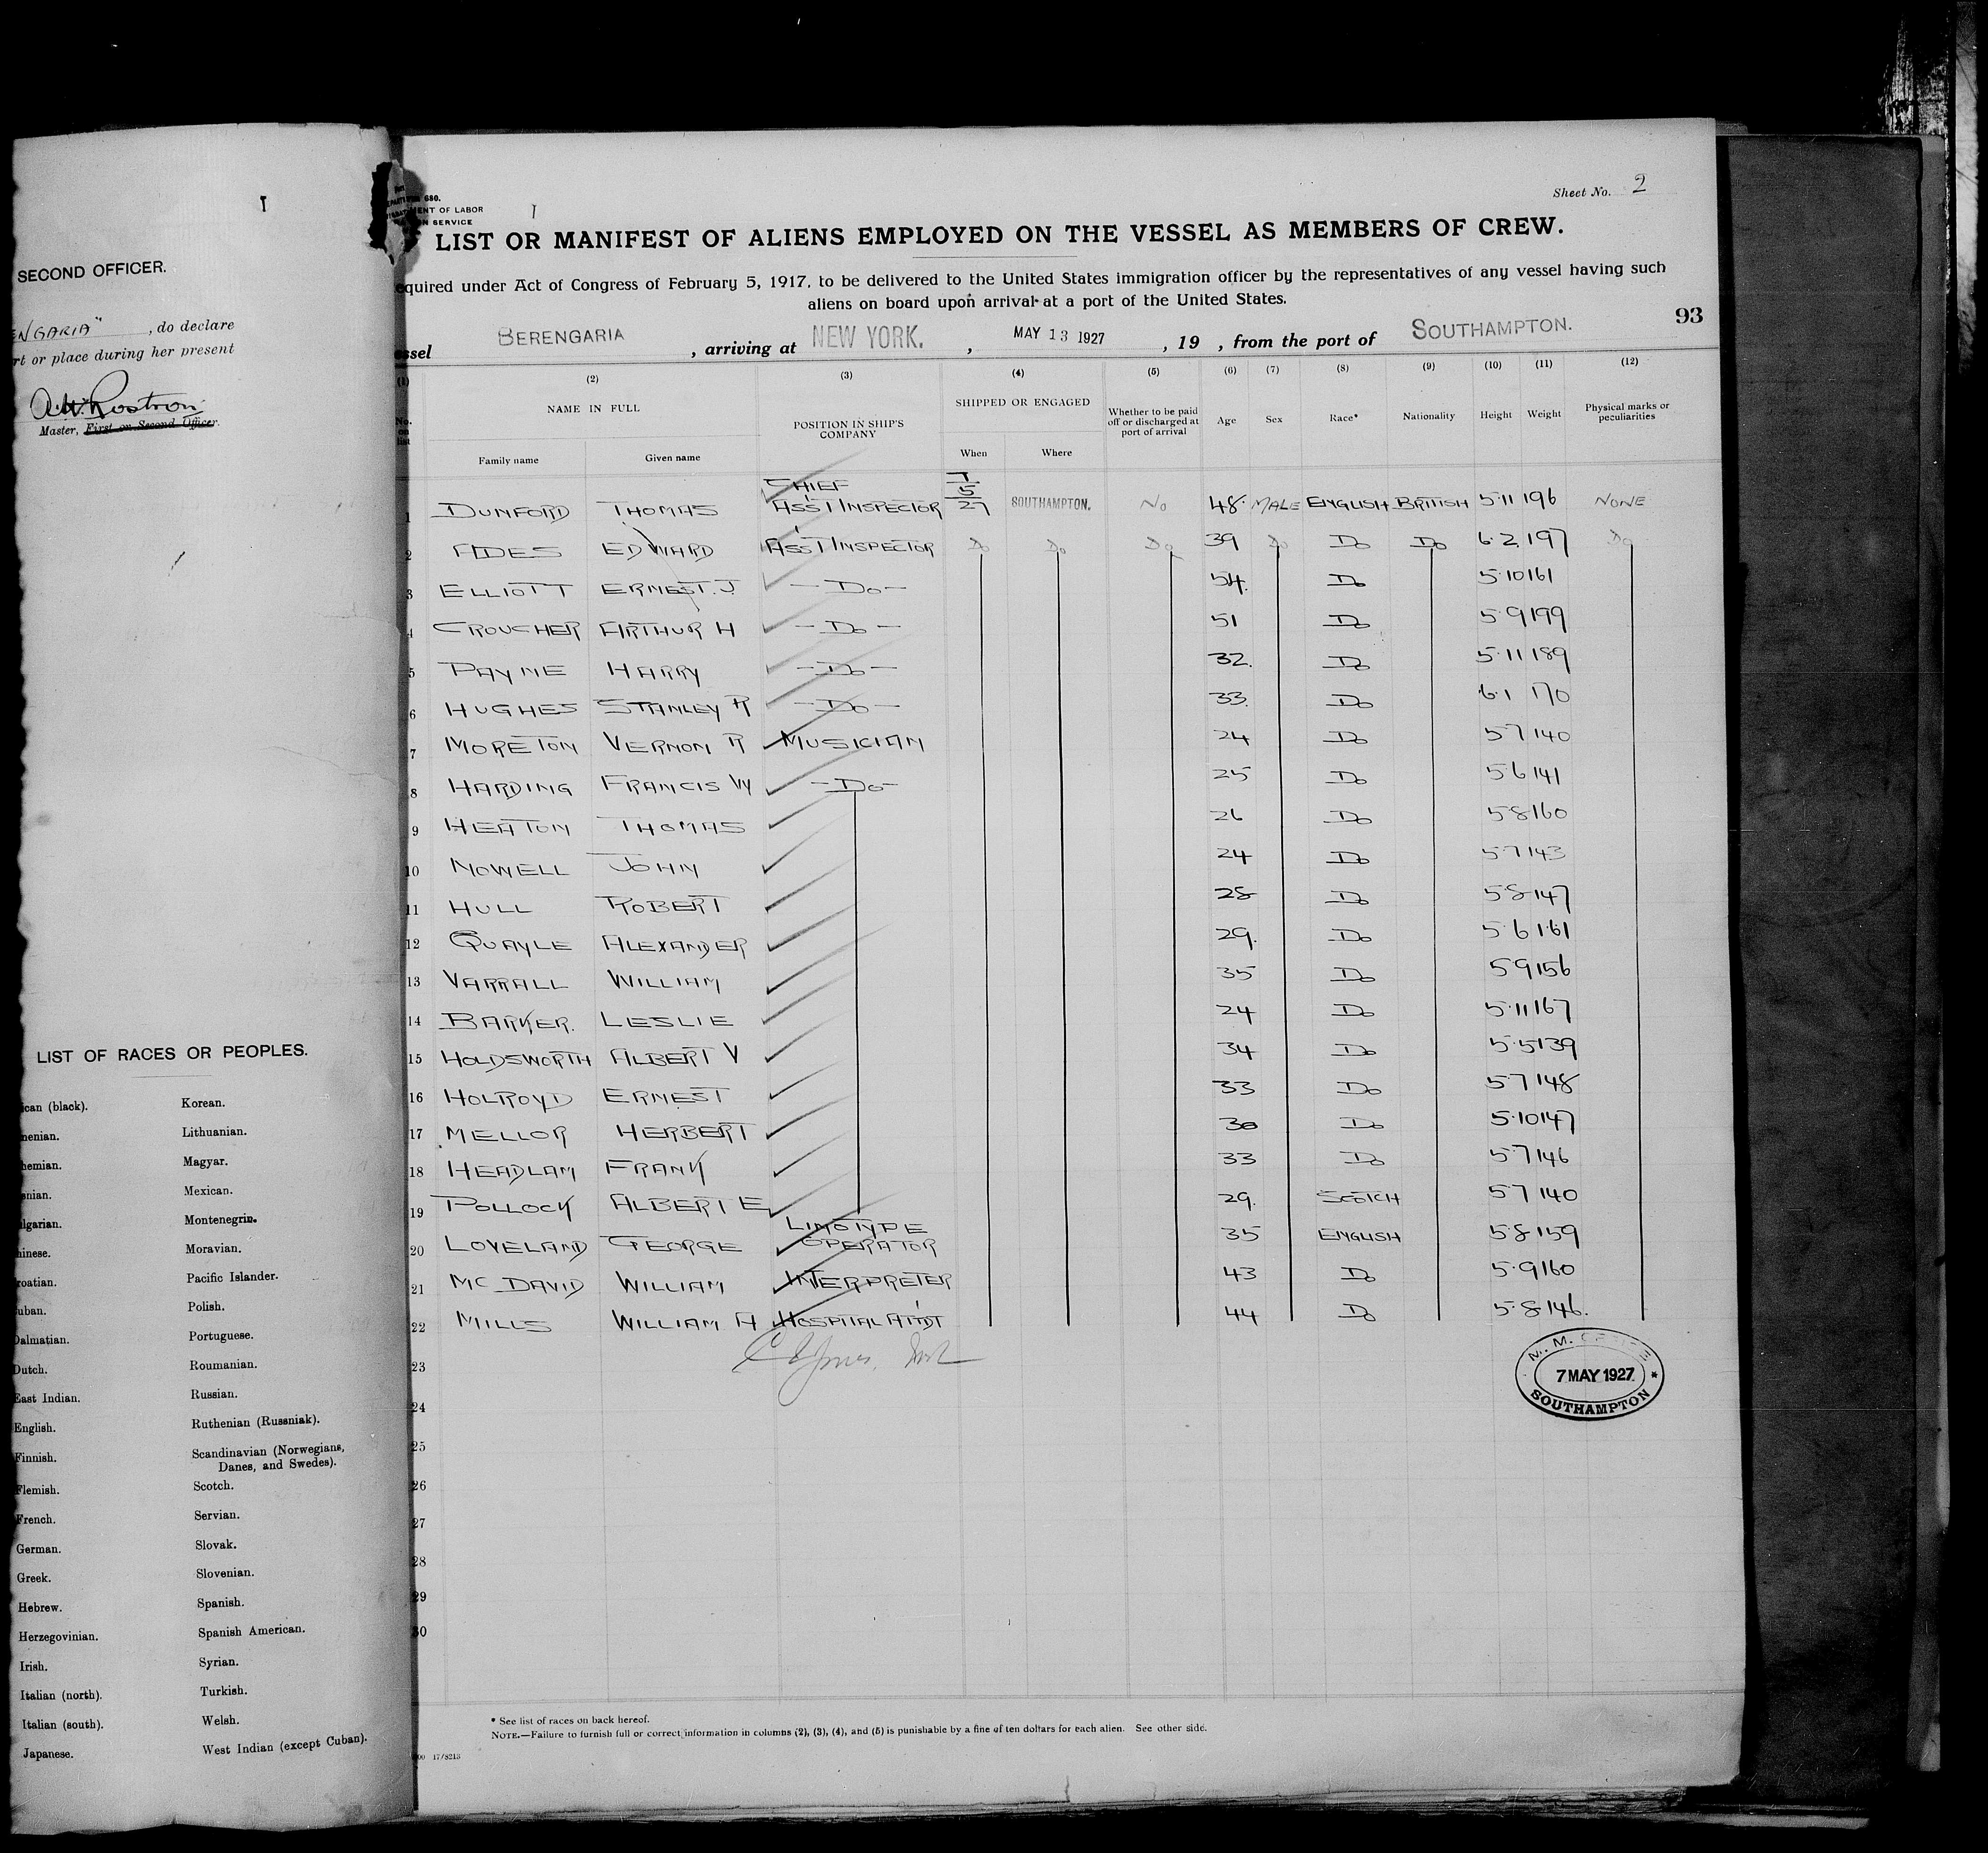 SECOND OFFICER.
ENGARIA" , do declare
rt or place during her present
A.H. Rostron
Master, First or Second Officer.
LIST OF RACES OR PEOPLES.
ican (black). Korean.
menian. Lithuanian.
hemian. Magyar.
snian. Mexican.
lgarian. Montenegrin.
hinese. Moravian.
roatian. Pacific Islander.
uban. Polish.
Dalmatian. Portuguese.
Dutch. Roumanian.
East Indian. Russian.
English. Ruthenian (Russniak).
Finnish. Scandinavian (Norwegians,
Danes, and Swedes).
Flemish. Scotch.
French. Servian.
German. Slovak.
Greek. Slovenian.
Hebrew. Spanish.
Herzegovinian. Spanish American.
Irish. Syrian.
Italian (north). Turkish.
Italian (south). Welsh.
Japanese. West Indian (except Cuban).
680.
MENT OF LABOR
N SERVICE
Sheet No. 2
LIST OR MANIFEST OF ALIENS EMPLOYED ON THE VESSEL AS MEMBERS OF CREW.
equired under Act of Congress of February 5, 1917, to be delivered to the United States immigration officer by the representatives of any vessel having such
aliens on board upon arrival at a port of the United States.
93
essel BERENGARIA , arriving at NEW YORK. , MAY 13 1927 , 19 , from the port of SOUTHAMPTON.
(1) (2) (3) (4) (5) (6) (7) (8) (9) (10) (11) (12)
No. on list NAME IN FULL Family name Given name POSITION IN SHIP'S COMPANY SHIPPED OR ENGAGED When Where Whether to be paid off or discharged at port of arrival Age Sex Race* Nationality Height Weight Physical marks or peculiarities
1 DUNFORD THOMAS CHIEF ASST INSPECTOR 7/5/27 SOUTHAMPTON. NO 48 MALE ENGLISH BRITISH 5·11 196 NONE
2 EDWARD ASST INSPECTOR DO DO DO 39 DO DO DO 6·2 197 DO
3 ELLIOTT ERNEST. J. -DO- 54. DO 5·10 161
4 CROUCHER ARTHUR H -DO- 51 DO 5·9 199
5 PAYNE HARRY -DO- 32. DO 5·11 189
6 HUGHES STANLEY R -DO- 33. DO 6·1 170
7 MORETON VERNON R MUSICIAN 24 DO 5·7 140
8 HARDING FRANCIS W -DO- 25 DO 5·6 141
9 HEATON THOMAS 26 DO 5·8 160
10 NOWELL JOHN 24 DO 5·7 143
11 HULL ROBERT 28 DO 5·8 147
12 QUAYLE ALEXANDER 29. DO 5·6 161
13 VARRALL WILLIAM 35 DO 5·9 156
14 BARKER. LESLIE 24 DO 5·11 167
15 HOLDSWORTH ALBERT V 34 DO 5·5 139
16 HOLROYD ERNEST 33 DO 5·7 148
17 MELLOR HERBERT 30 DO 5·10 147
18 HEADLAM FRANK 33 DO 5·7 146
19 POLLOCK ALBERT E 29. SCOTCH 5·7 140
20 LOVELAND GEORGE LINOTYPE OPERATOR 35 ENGLISH 5·8 159
21 MC DAVID WILLIAM INTERPRETER 43 DO 5·9 160
22 MILLS WILLIAM A HOSPITAL ATTDT 44 DO 5·8 146.
23
24
25
26
27
28
29
30
M. M. OFFICE
7 MAY 1927
SOUTHAMPTON
* See list of races on back hereof.
NOTE.—Failure to furnish full or correct information in columns (2), (3), (4), and (5) is punishable by a fine of ten dollars for each alien. See other side.
17/8213